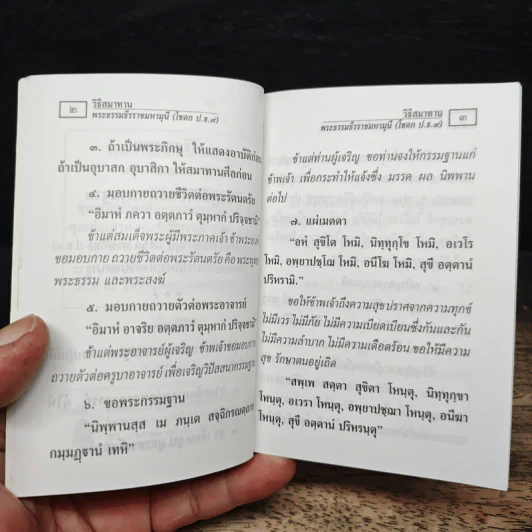 ๒
วิธีสมาทาน
พระธรรมธีรราชมหามุนี (โชดก ป.ธ.๙)
๓. ถ้าเป็นพระภิกษุ ให้แสดงอาบัติก่อน
ถ้าเป็นอุบาสก อุบาสิกา ให้สมาทานศีลก่อน
๔. มอบกายถวายชีวิตต่อพระรัตนตรัย
“อิมาหํ ภควา อตฺตภาวํ ตุมฺหากํ ปริจฺจชามิ”
ข้าแต่สมเด็จพระผู้มีพระภาคเจ้า ข้าพระองค์
ขอมอบกาย ถวายชีวิตต่อพระรัตนตรัย คือ พระพุทธ
พระธรรม และพระสงฆ์
๕. มอบกายถวายตัวต่อพระอาจารย์
“อิมาหํ อาจริย อตฺตภาวํ ตุมฺหากํ ปริจฺจชามิ”
ข้าแต่พระอาจารย์ผู้เจริญ ข้าพเจ้าขอมอบกาย
ถวายตัวต่อครูบาอาจารย์ เพื่อเจริญวิปัสสนากรรมฐาน
๖. ขอพระกรรมฐาน
“นิพฺพานสฺส เม ภนฺเต สจฺฉิกรณตฺถาย
กมฺมฏฺฐานํ เทหิ”
วิธีสมาทาน
พระธรรมธีรราชมหามุนี (โชดก ป.ธ.๙)
๓
ข้าแต่ท่านผู้เจริญ ขอท่านจงให้กรรมฐานแก่
ข้าพเจ้า เพื่อกระทำให้แจ้งซึ่ง มรรค ผล นิพพาน
ต่อไป
๗. แผ่เมตตา
“อหํ สุขิโต โหมิ, นิทฺทุกฺโข โหมิ, อเวโร
โหมิ, อพฺยาปชฺโฌ โหมิ, อนีโฆ โหมิ, สุขี อตฺตานํ
ปริหรามิ.”
ขอให้ข้าพเจ้าถึงความสุข ปราศจากความทุกข์
ไม่มีเวร ไม่มีภัย ไม่มีความเบียดเบียนซึ่งกันและกัน
ไม่มีความลำบาก ไม่มีความเดือดร้อน ขอให้มีความ
สุข รักษาตนอยู่เถิด
“สพฺเพ สตฺตา สุขิตา โหนฺตุ, นิทฺทุกฺขา
โหนฺตุ, อเวรา โหนฺตุ, อพฺยาปชฺฌา โหนฺตุ, อนีฆา
โหนฺตุ, สุขี อตฺตานํ ปริหรนฺตุ”